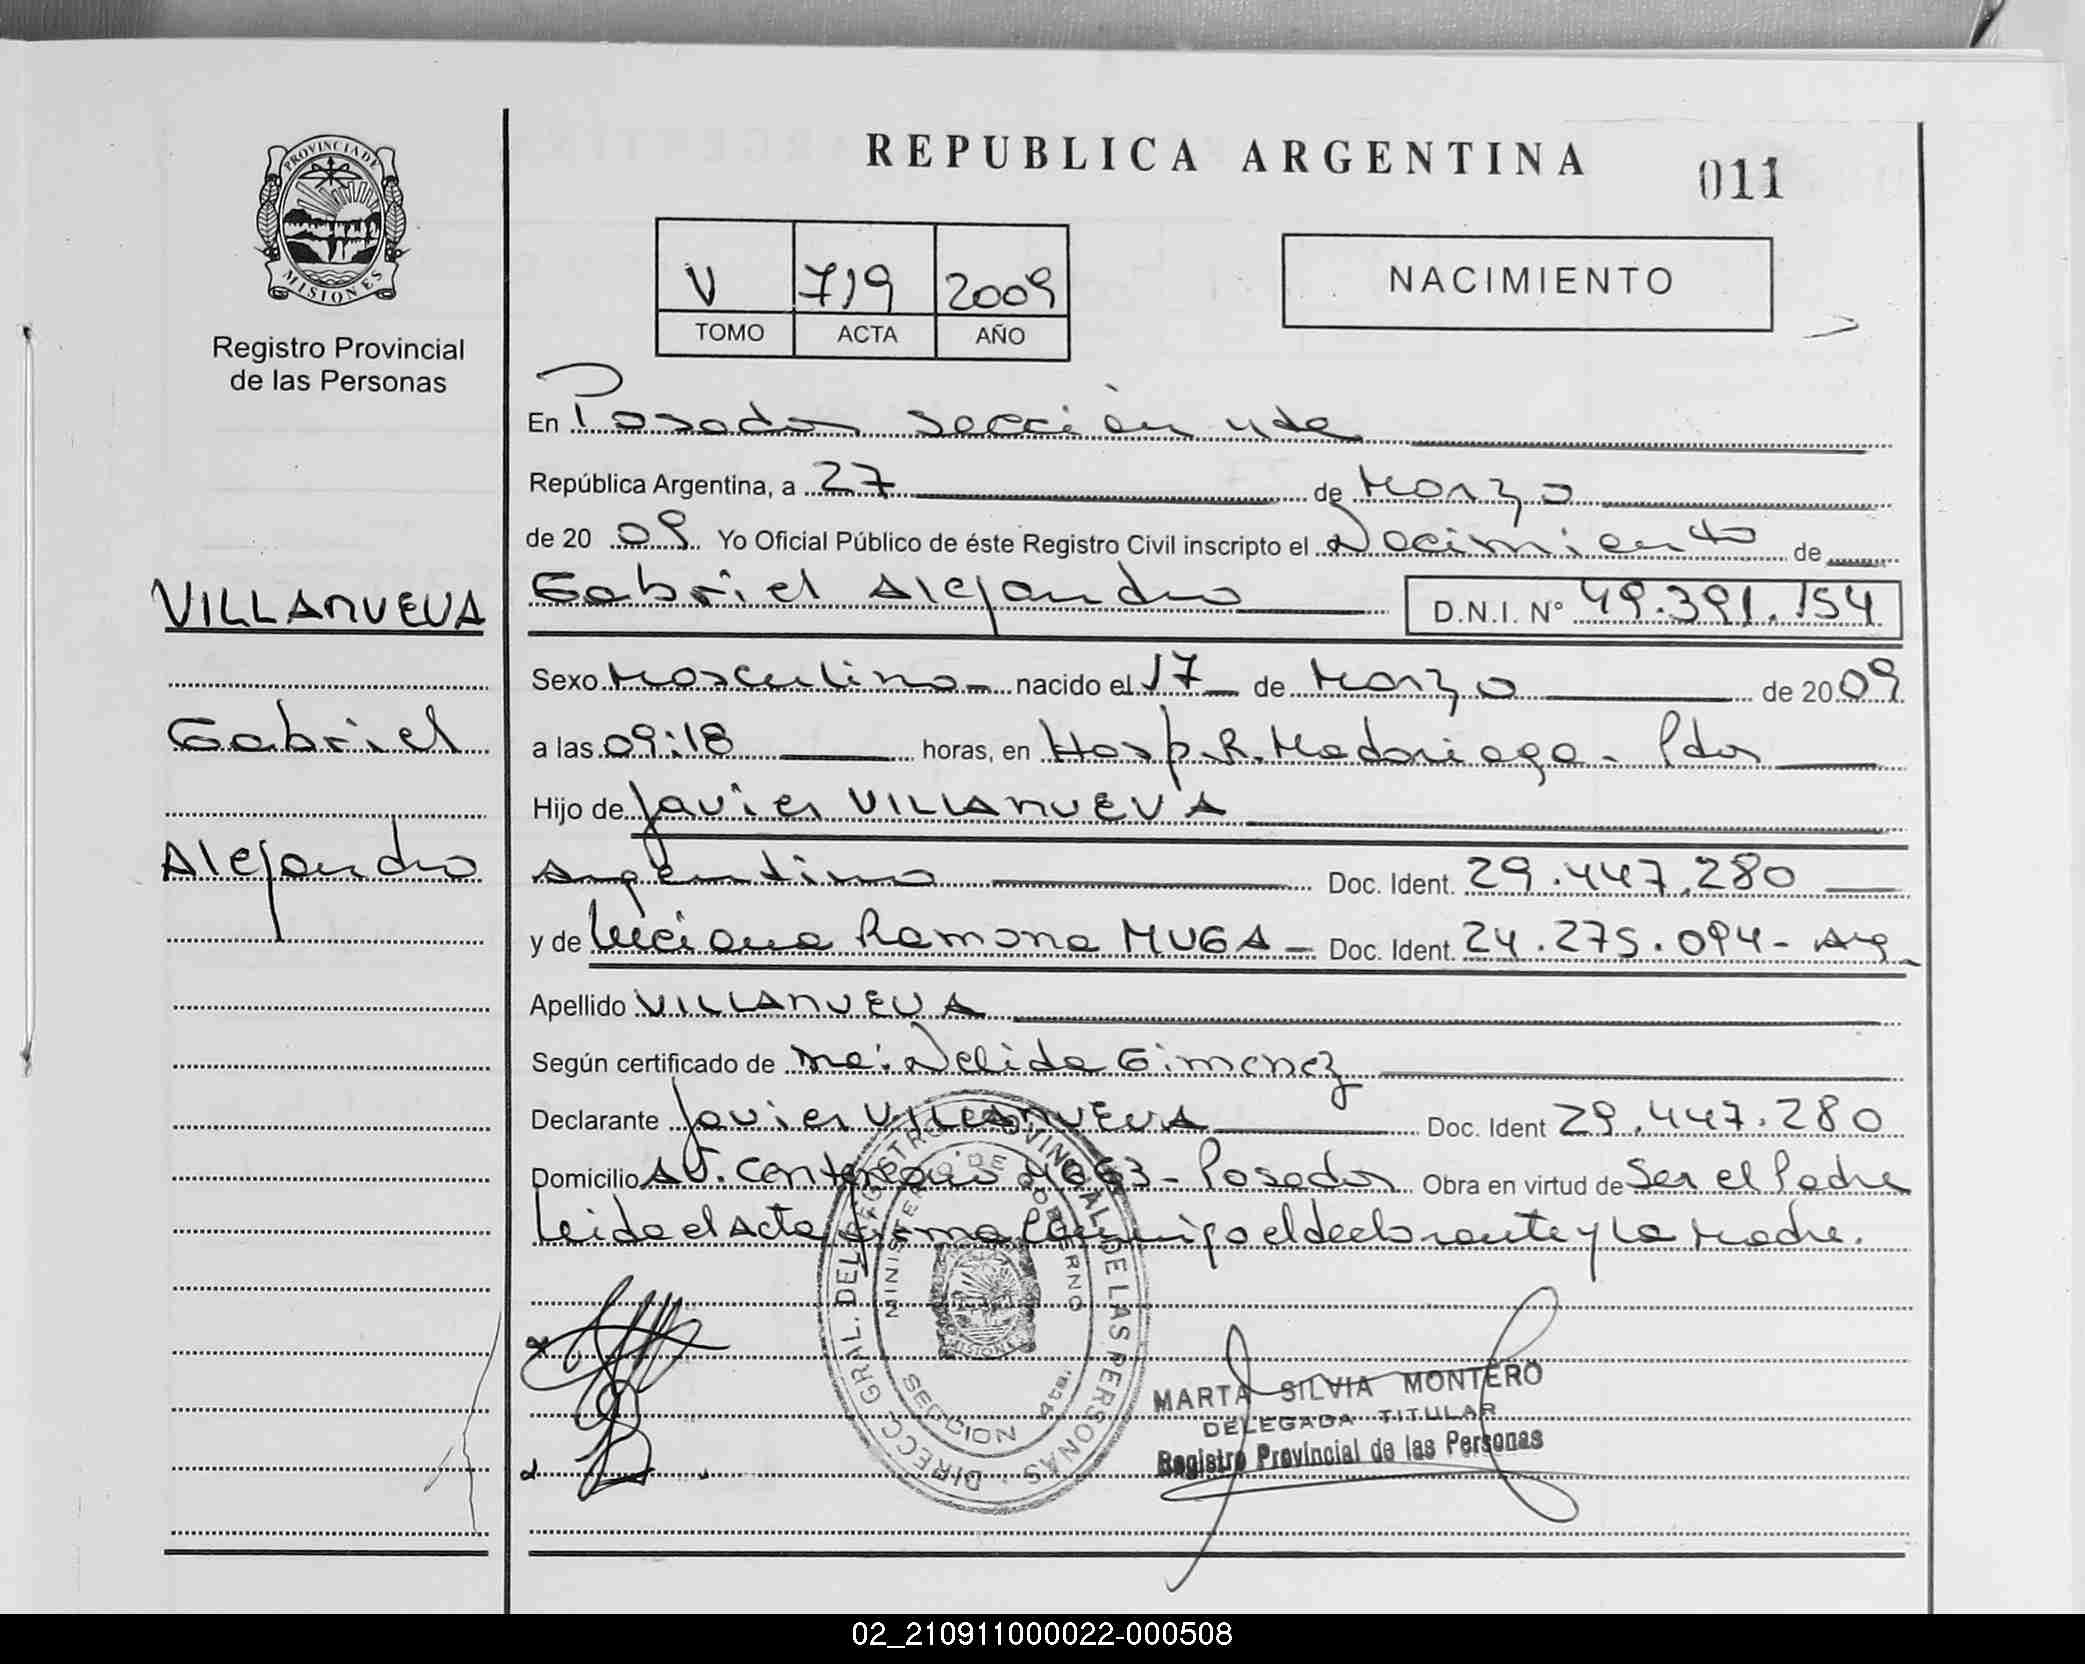 REPUBLICA ARGENTINA
011
PROVINCIA DE
MISIONES
Registro Provincial
de las Personas
V 719 2009
TOMO ACTA AÑO
NACIMIENTO
En Posadas sección 4ta
República Argentina, a 27 de Marzo
de 20 09 Yo Oficial Público de éste Registro Civil inscripto el Nacimiento de
VILLANUEVA
Gabriel
Alejandro
Gabriel Alejandro D.N.I. Nº 49.391.154
Sexo Masculino nacido el 17 de Marzo de 2009
a las 09:18 horas, en Hosp. R. Madariaga - Pdas
Hijo de Javier VILLANUEVA
Argentino Doc. Ident. 29.447.280
y de Luciana Ramona MUGA - Doc. Ident. 24.275.094 - Arg
Apellido VILLANUEVA
Según certificado de Nélida Gimenez
Declarante Javier VILLANUEVA Doc. Ident 29.447.280
Domicilio AV. 4063 - Posadas Obra en virtud de Ser el Padre
Leida el Acta firma Conmigo el declarante y La Madre.
DIRECC. GRAL. DEL REGISTRO PROVINCIAL DE LAS PERSONAS
MINISTERIO DE GOBIERNO
MISIONES
SECCION 4ta.
MARTA SILVIA MONTERO
DELEGADA TITULAR
Registro Provincial de las Personas
02_210911000022-000508